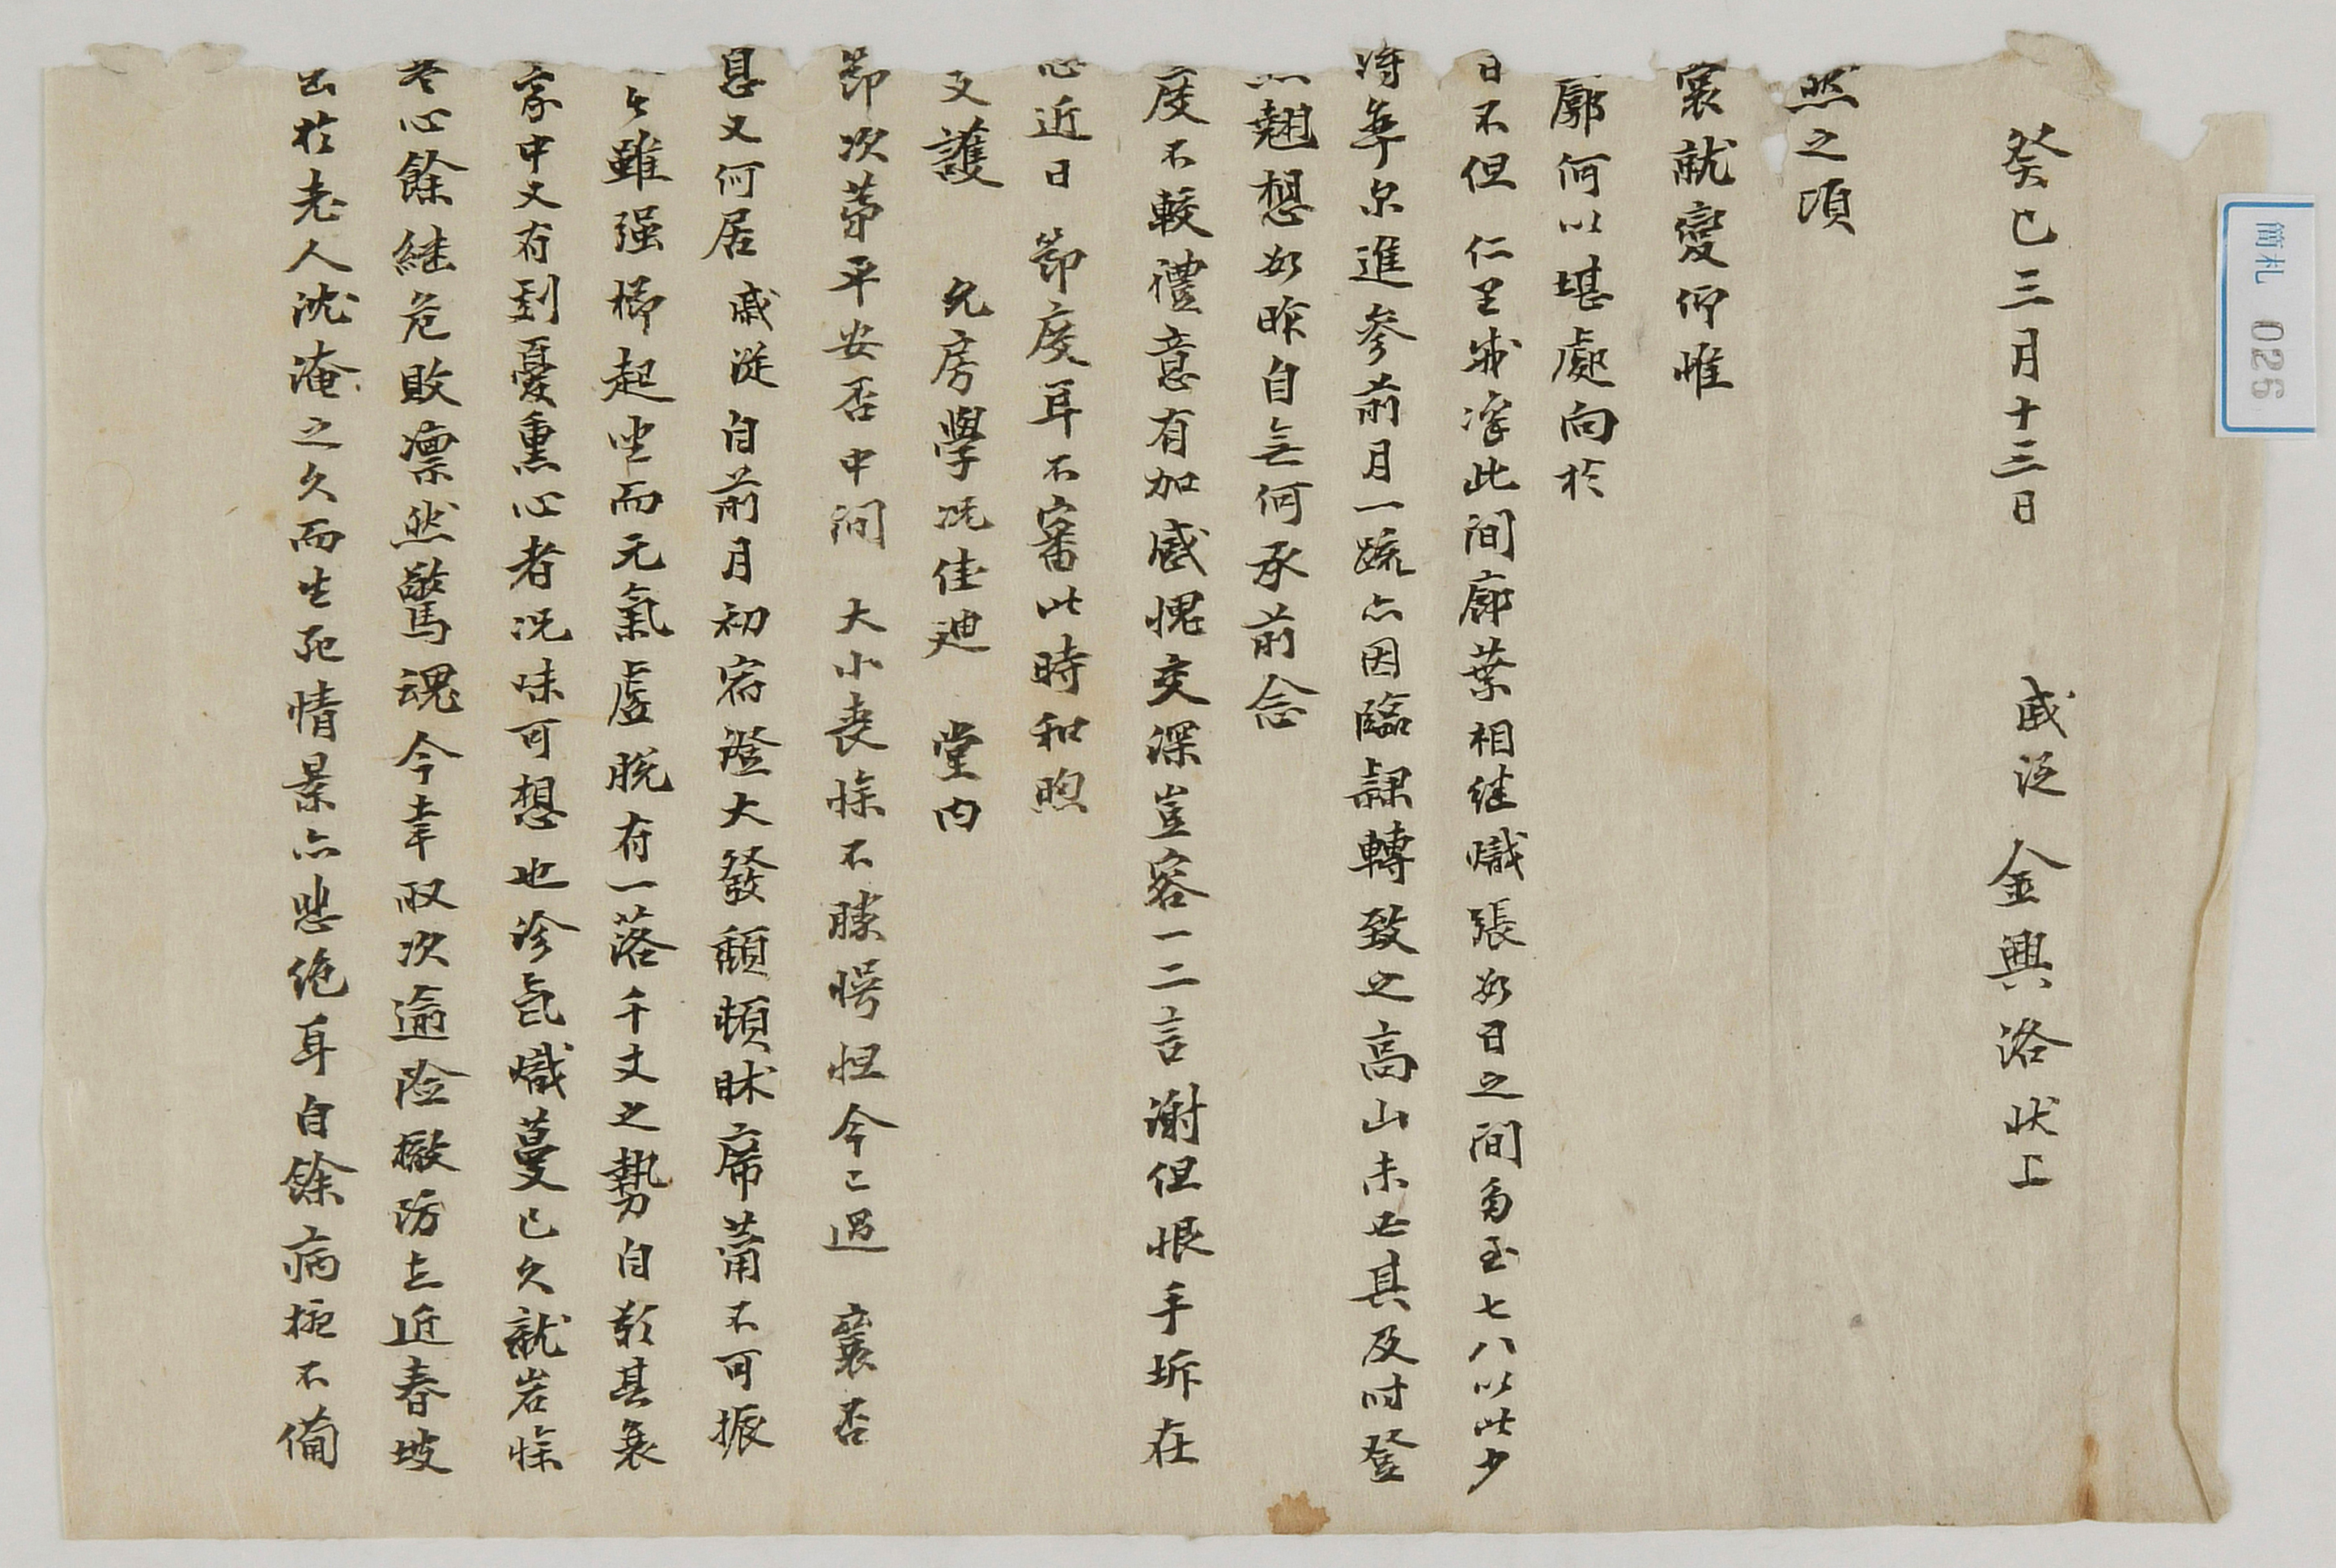 癸巳三月十三日 戚從 金興洛 狀上
然之頃
襄就變仰惟
廓何以堪處向於
日不但 仁里 此間廓葉相繼熾張如日之間多至七八以此少
年京進參前月一疏亦因臨隷轉致之高山未必其及時登
照翹想如昨自無何承前念
度不較禮意有加感愧交深豈容一二言謝但恨手坼在
近日 節度耳不審此時和煦
文護 允房學況佳迪 堂內
節次第平安否中間 大小喪慘不勝愕怛今已過 襄否
息又何居 戚從自前月初宿 大發頹頓牀席 不可振
雖强梳起坐而元氣虛脫有一落千丈之勢自歎其衰
家中又有 憂熏心者況味可想也沴氣熾蔓已久就岩慘
心餘継危敗凛然驚魂今幸取次逾险撤防 近春坡
出於老人沈淹之久而生死情景亦悲絶耳自餘病撓不備
簡札 026